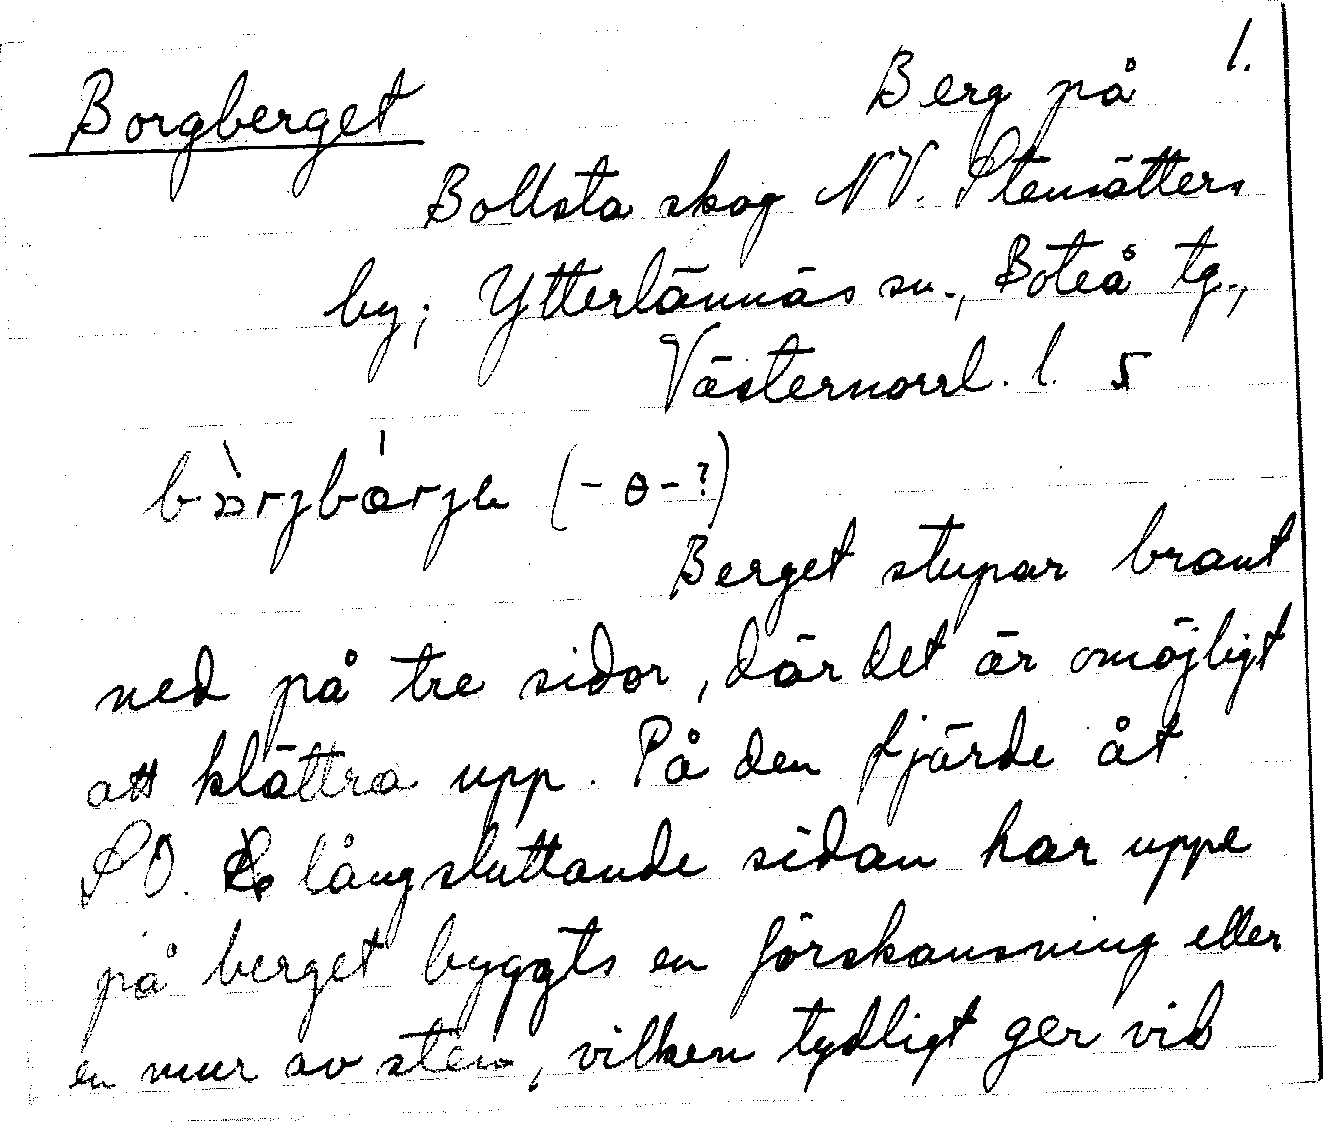 1.
Borgberget Berg på
Bollsta skog NV. Stensätters
by; Ytterlännäs sn., Boteå tg.,
Västernorrl. l. 5
(-ɵ-?)
Berget stupar brant
ned på tre sidor, där det är omöjligt
att klättra upp. På den fjärde åt
SO. långsluttande sidan har uppe
på berget byggts en förskansning eller
en mur av sten, vilken tydligt ger vid